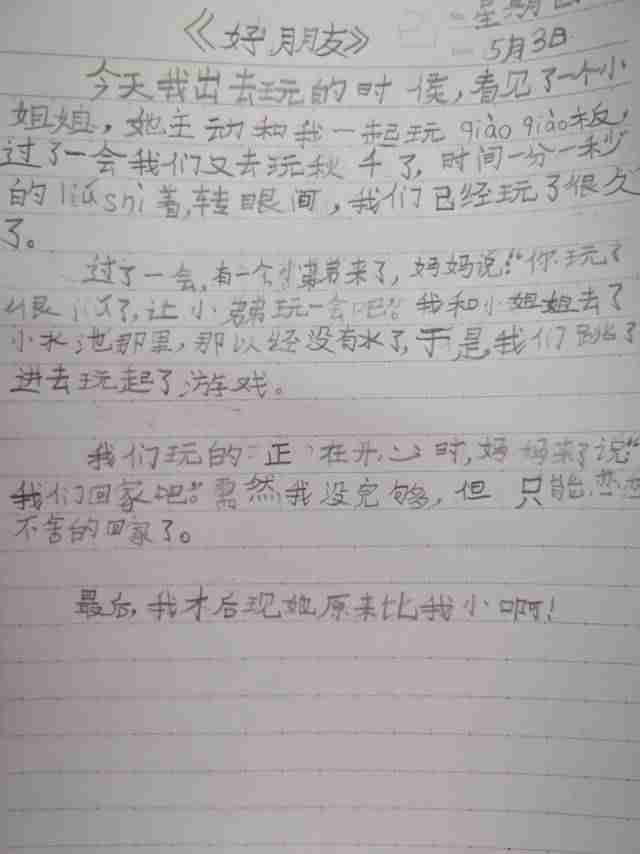 《好朋友》
星期
5月3日
今天我出去玩的时候,看见了一个小
姐姐,她主动和我一起玩qiào qiào板,
过了一会我们又去玩秋千了,时间一分一秒
的liú shì着,转眼间,我们已经玩了很久
了。
过了一会,有一个小弟弟来了,妈妈说:“你玩了
很久了,让小弟弟玩一会吧。”我和小姐姐去了
小水池那里,那以经没有水了,于是,我们跳了
进去玩起了游戏。
我们玩的正在开心时,妈妈来了说“
我们回家吧。”虽然我没完够,但只能
不舍的回家了。
最后,我才后现她原来比我小啊!